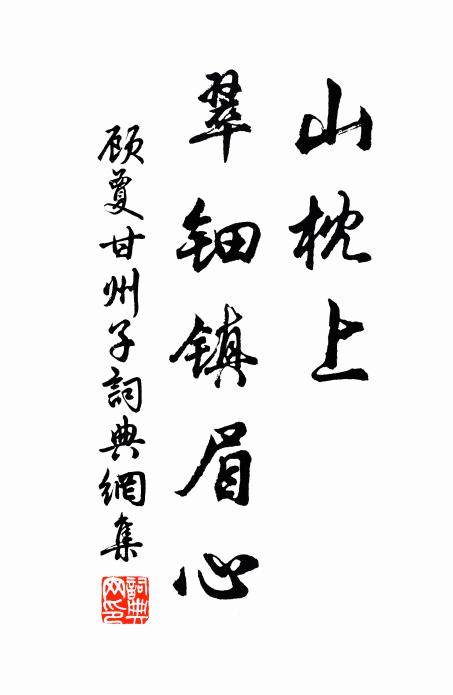 山枕上
翠钿镇眉心
顾夐甘州子詞典網集
詞典網印